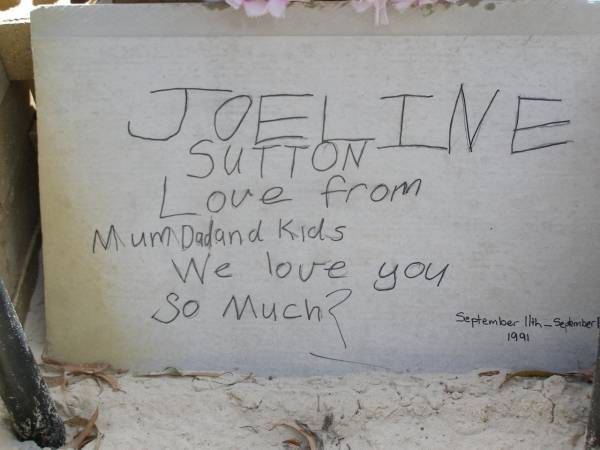 JOELINE
SUTTON
Love from
Mum Dad and Kids
We love you
So Much?
September 11th – September
1991